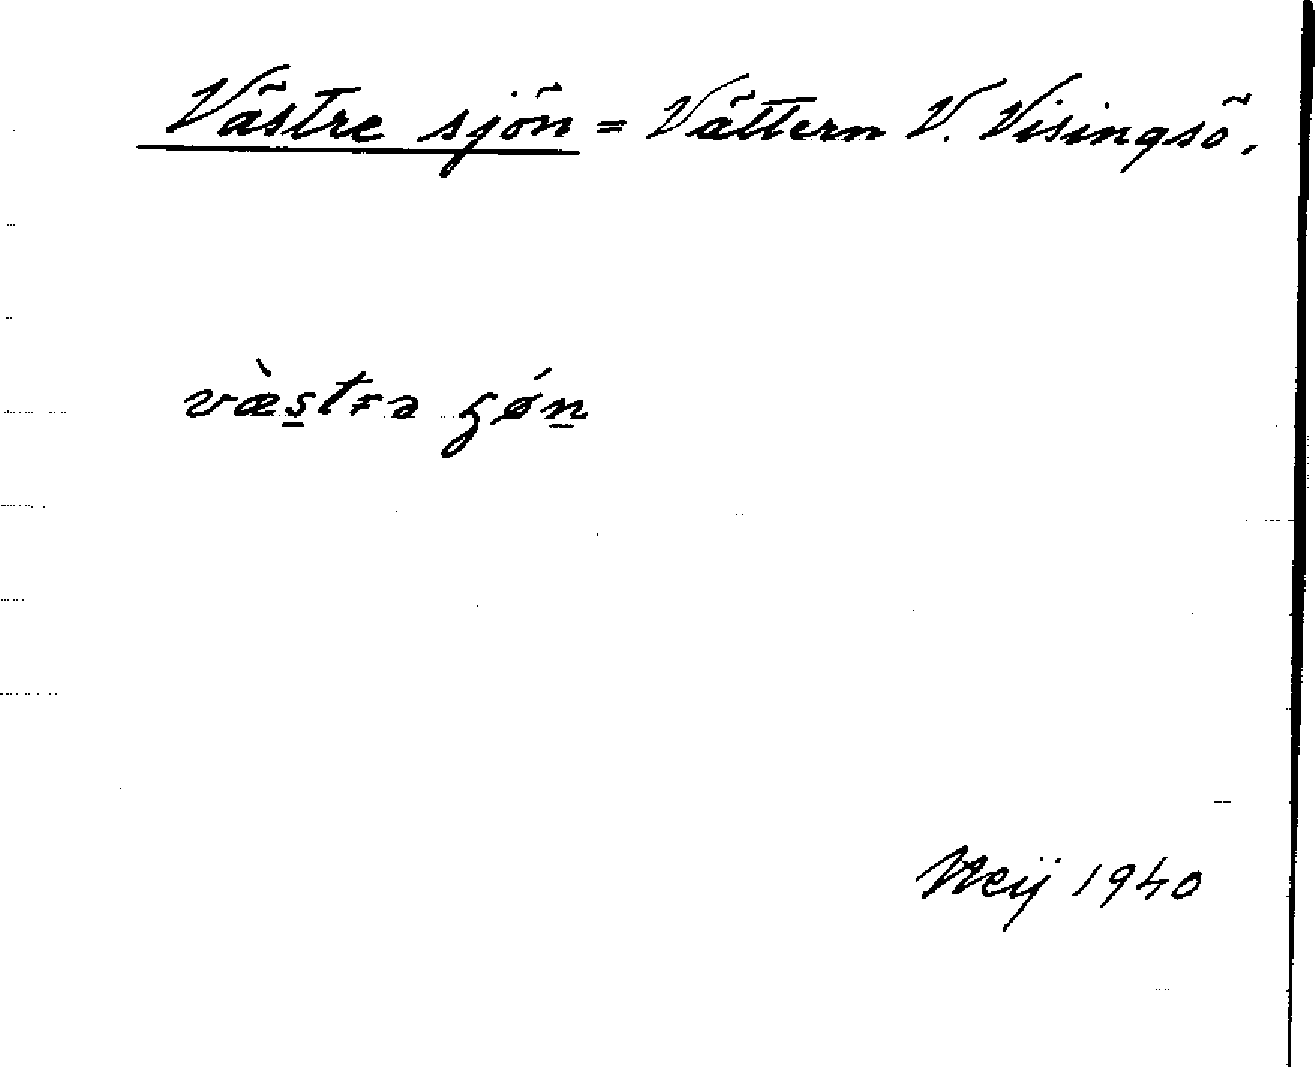 Västre sjön = Vättern V. Visingsö.
væ̀s̲trə ʂǿn̲
Meÿ 1940